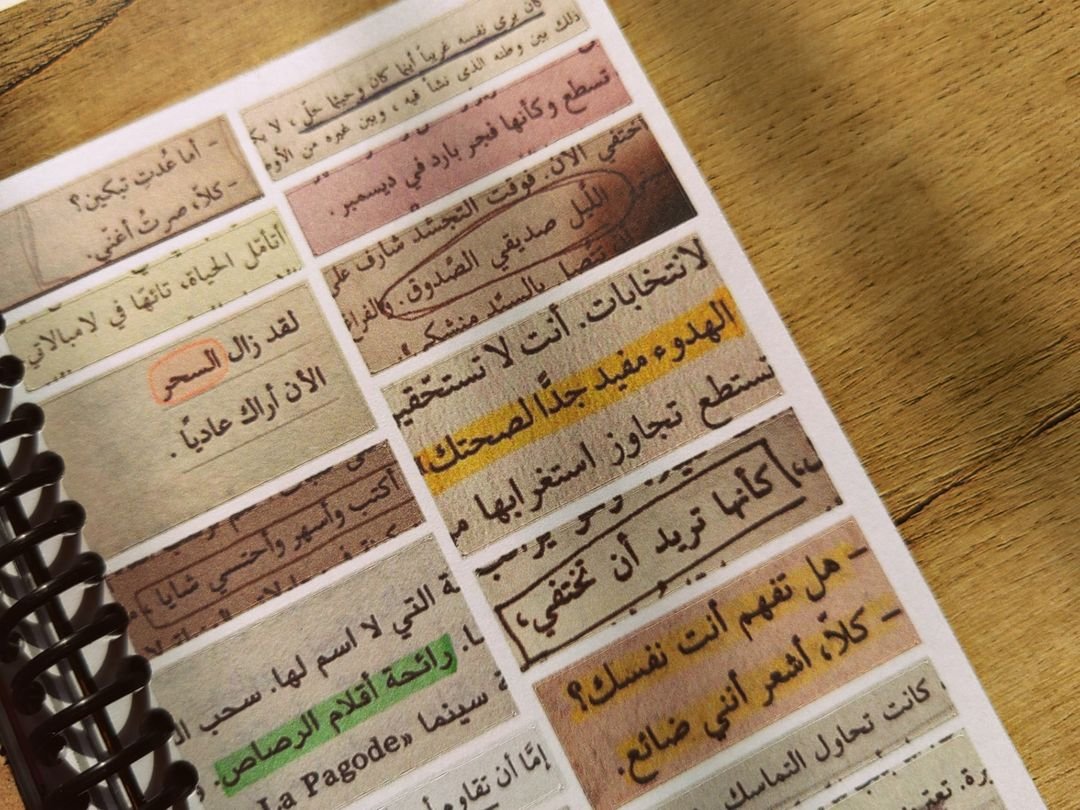 كان يرى نفسه غريباً أينما كان وحيثما حلّ، لا يك
ذلك بين وطنه الذى نشأ فيه، وبين غيره من الأو
تسطع وكأنها فجر بارد في ديسمبر.
اختفي الآن. فوقت التجسّد شارف على
اللّيل صديقي الصّدوق. والفراق
تتصل بالسيّد منشكي!
لانتخابات. أنت لا تستحق
الهدوء مفيد جدًّا لصحتك
تستطع تجاوز استغرابها من
كأنها تريد أن تختفي،
– هل تفهم أنت نفسك؟
– كلاّ، أشعر أنني ضائع.
كانت تحاول التماسك
- أما عُدتِ تبكين؟
- كلاّ، صرتُ أغنّي.
أتأمّل الحياة، تائهًا في لامبالاتي
لقد زال السحر
الأن أراك عاديًّا.
أكتب وأسهر وأحتسي شايا،
ة التي لا اسم لها. سحب ال
ـا. رائحة أقلام الرصاص. و
ة سينما «La Pagode
إمَّا أن نقاوم أ